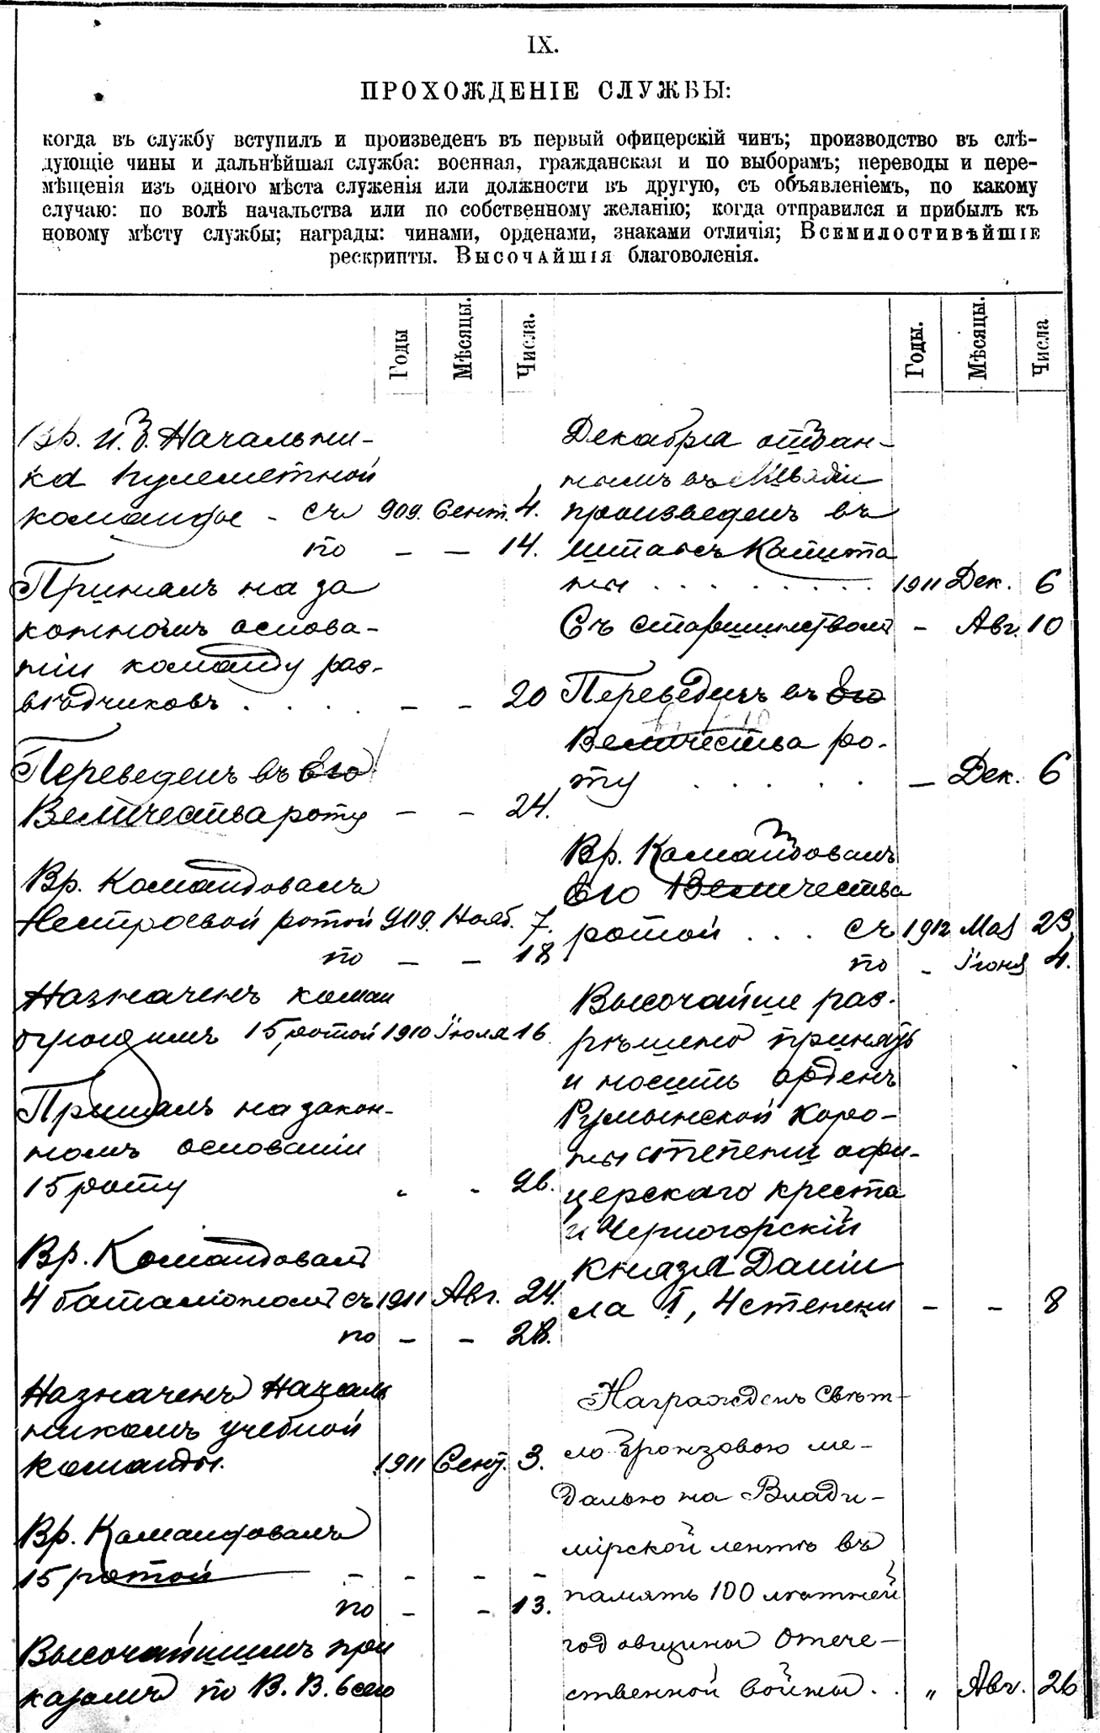 IX.
ПРОХОЖДЕНІЕ СЛУЖБЫ:
когда въ службу вступилъ и произведенъ въ первый офицерскій чинъ; производство въ слѣ-
дующіе чины и дальнѣйшая служба: военная, гражданская и по выборамъ; переводы и пере-
мѣщенія изъ одного мѣста служенія или должности въ другую, съ объявленіемъ, по какому
случаю: по волѣ начальства или по собственному желанію; когда отправился и прибылъ къ
новому мѣсту службы; награды: чинами, орденами, знаками отличія; Всемилостивѣйшіе
рескрипты. Высочайшія благоволенія.
Годы Мѣсяцы. Числа.
Вр. И. д. Начальни-
ка пулеметной
команды - съ 909. Сент. 4.
по — — 14.
Принялъ на за
конномъ основа-
ніи команду раз-
вѣдчиковъ . . . . — — 20
Переведенъ въ Его
Величества роту — — 24.
Вр. Командовалъ
Нестроевой ротой 909. Нояб. 7.
по — — 18
Назначенъ коман
дующимъ 15 ротой 1910 Іюля 16
Принялъ на закон-
номъ основаніи
15 роту - - 26.
Вр. Командовалъ
4 баталіономъ съ 1911 Авг. 24.
по — — 28.
Назначенъ Началь
никомъ учебной
команды. 1911 Сент. 3.
Вр. Командовалъ
15 ротой — — — —
по — — 13.
Высочайшимъ при
казомъ по В. В. 6 сего
Годы. Мѣсяцы. Числа
Декабря отдан-
нымъ въ Ливадіи
произведенъ въ
Штабсъ Капита
ны . . . . . . . . 1911 Дек. 6
Съ старшинствомъ — Авг. 10
Переведенъ въ Его
Величества ро-
ту . . . . — Дек. 6
Вр. Командовалъ
Его Величества
ротой . . . съ 1912 Мая 23
по - Іюня 4.
Высочайше раз-
рѣшено принять
и носить орденъ
Румынской Коро-
ны степени офи-
церскаго креста
и Черногорскій
Князя Даніи
ла I, 4 степени — — 8
Награжденъ свѣт-
ло бронзовою ме-
далью на Влади-
мірской лентѣ въ
память 100 лѣтней
годовщины Отече-
ственной войны. . „ Авг. 26